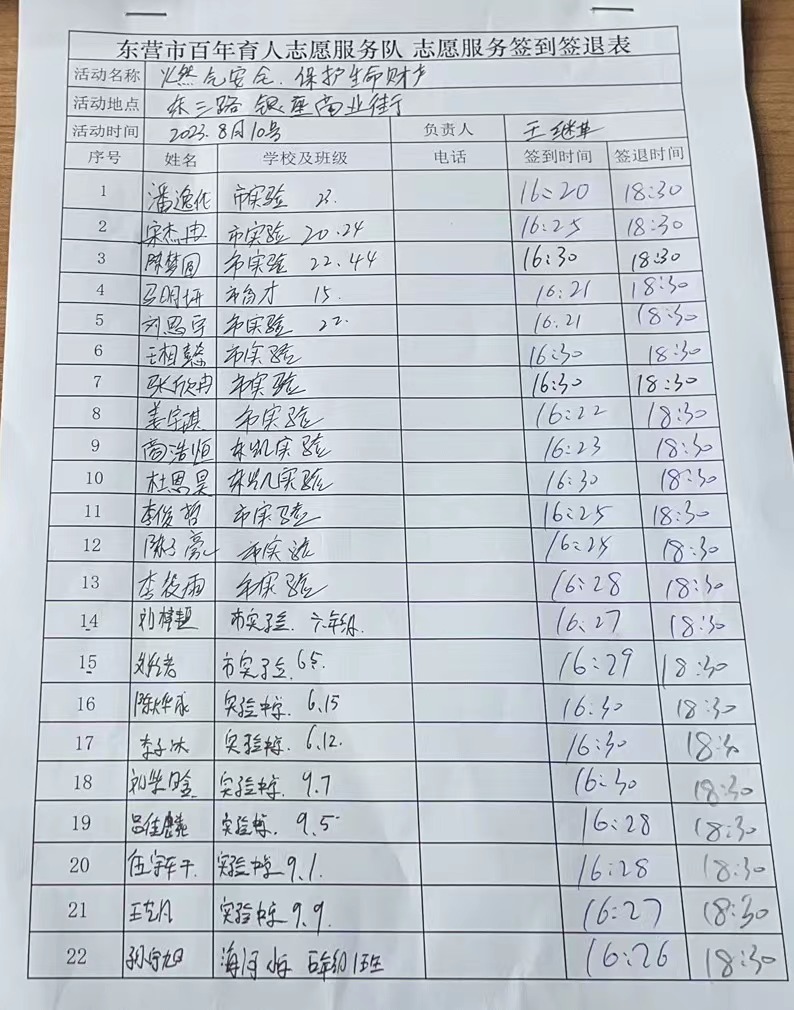 东营市百年育人志愿服务队 志愿服务签到签退表
活动名称 燃气安全、保护生命财产
活动地点 东三路 银座商业街
活动时间 2023.8月10号 负责人 王继华
序号 姓名 学校及班级 电话 签到时间 签退时间
1 潘逸 市实验 23. 16:20 18:30
2 宋杰冉 市实验 20.24 16:25 18:30
3 陈梦圆 市实验 22.44 16:30 18:30
4 马明妍 市育才 15. 16:21 18:30
5 刘恩宇 市实验 22. 16:21 18:30
6 王相懿 市实验 16:30 18:30
7 张欣冉 市实验 16:30 18:30
8 姜宇琪 市实验 16:22 18:30
9 尚浩恒 东凯实验 16:23 18:30
10 杜思昊 东凯实验 16:30 18:30
11 李俊哲 市实验 16:25 18:30
12 陈子亮 市实验 16:25 18:30
13 李筱雨 市实验 16:28 18:30
14 刘梓 市实验. 六年级. 16:27 18:30
15 市实验. 6.5. 16:29 18:30
16 陈烨 实验中学. 6.15 16:30 18:30
17 李子冰 实验中学. 6.12. 16:30 18:30
18 刘 晗 实验中学. 9.7 16:30 18:30
19 吕佳麟 实验中学. 9.5 16:28 18:30
20 伍 实验中学 9.1. 16:28 18:30
21 王艺凡 实验中学 9.9. 16:27 18:30
22 孙宇旭 海河小学 五年级1班 16:26 18:30